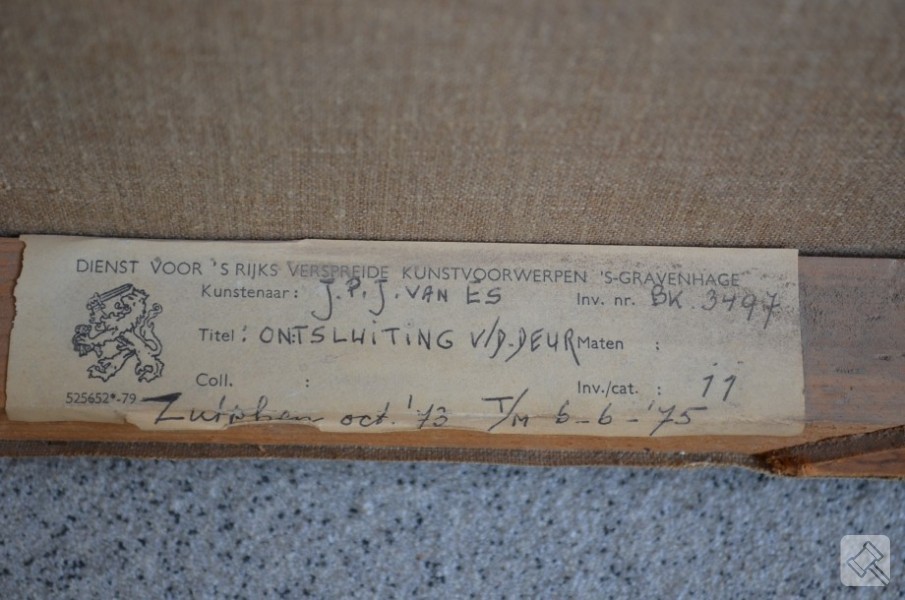 DIENST VOOR 'S RIJKS VERSPREIDE KUNSTVOORWERPEN 'S-GRAVENHAGE
Kunstenaar: J.P.J. VAN ES Inv. nr. BK. 3497
Titel: ONTSLUITING V/D. DEUR Maten :
Coll. : Inv./cat. : 11
525652*-79
Zutphen oct. '73 T/M 6-6-'75